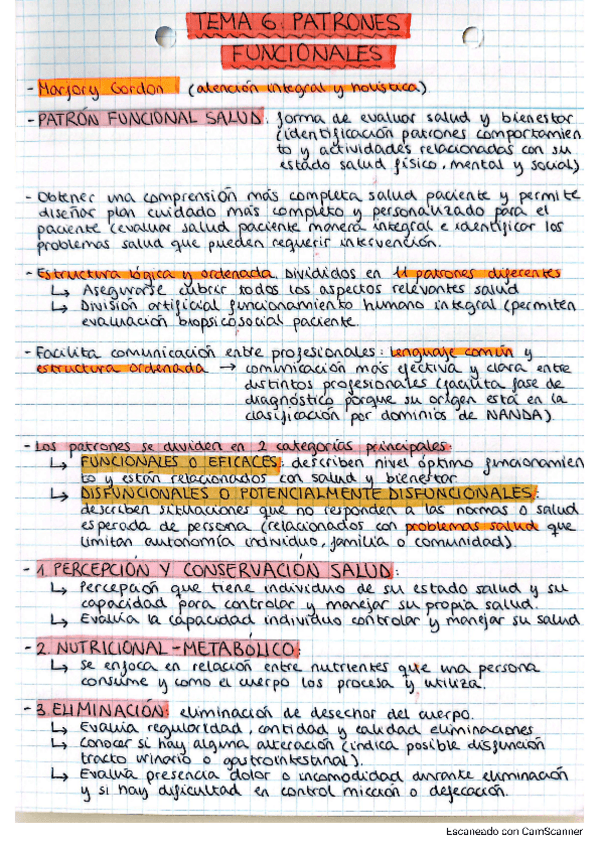 TEMA 6: PATRONES
FUNCIONALES
- Marjory Gordon (atención integral y holística)
- PATRÓN FUNCIONAL SALUD: forma de evaluar salud y bienestar
(identificación patrones comportamien
to y actividades relacionadas con su
estado salud físico, mental y social)
- Obtener una comprensión más completa salud paciente y permite
diseñar plan cuidado más completo y personalizado para el
paciente (evaluar salud paciente manera integral e identificar los
problemas salud que pueden requerir intervención.
- Estructura lógica y ordenada. Divididos en 11 patrones diferentes
↳ Asegurarse cubrir todos los aspectos relevantes salud
↳ División artificial funcionamiento humano integral (permiten
evaluación biopsicosocial paciente.
- Facilita comunicación entre profesionales: lenguaje común y
estructura ordenada → comunicación más efectiva y clara entre
distintos profesionales (facilita fase de
diagnóstico porque su origen está en la
clasificación por dominios de NANDA).
- Los patrones se dividen en 2 categorías principales:
↳ FUNCIONALES O EFICACES: describen nivel óptimo funcionamien
to y están relacionados con salud y bienestar
↳ DISFUNCIONALES O POTENCIALMENTE DISFUNCIONALES:
describen situaciones que no responden a las normas o salud
esperada de persona (relacionados con problemas salud que
limitan autonomía individuo, familia o comunidad).
- 1. PERCEPCIÓN Y CONSERVACIÓN SALUD:
↳ Percepción que tiene individuo de su estado salud y su
capacidad para controlar y manejar su propia salud.
↳ Evalúa la capacidad individuo controlar y manejar su salud
- 2. NUTRICIONAL-METABÓLICO:
↳ se enfoca en relación entre nutrientes que una persona
consume y como el cuerpo los procesa y utiliza.
- 3. ELIMINACIÓN: eliminación de desechor del cuerpo.
↳ Evalúa regularidad, cantidad y calidad eliminaciones
↳ Conocer si hay alguna alteración (indica posible disfunción
tracto urinario o gastrointestinal).
↳ Evalúa presencia dolor o incomodidad durante eliminación
y si hay dificultad en control micción o defecación.
Escaneado con CamScanner